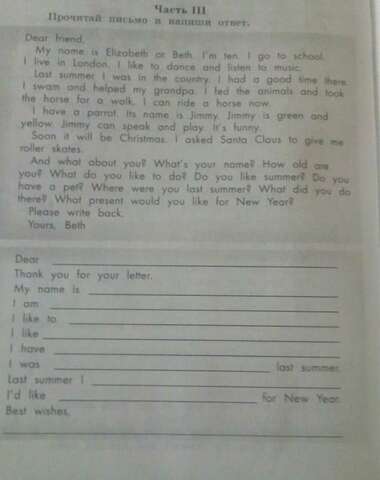 Часть III
Прочитай письмо и напиши ответ.
Dear friend,
My name is Elizabeth or Beth. I'm ten. I go to school.
I live in London. I like to dance and listen to music.
Last summer I was in the country. I had a good time there.
I swam and helped my grandpa. I fed the animals and took
the horse for a walk. I can ride a horse now.
I have a parrot. Its name is Jimmy. Jimmy is green and
yellow. Jimmy can speak and play. It's funny.
Soon it will be Christmas. I asked Santa Claus to give me
roller skates.
And what about you? What's your name? How old are
you? What do you like to do? Do you like summer? Do you
have a pet? Where were you last summer? What did you do
there? What present would you like for New Year?
Please write back.
Yours, Beth
Dear
Thank you for your letter.
My name is
I am
I like to
I like
I have
I was last summer.
Last summer I
I'd like for New Year.
Best wishes,